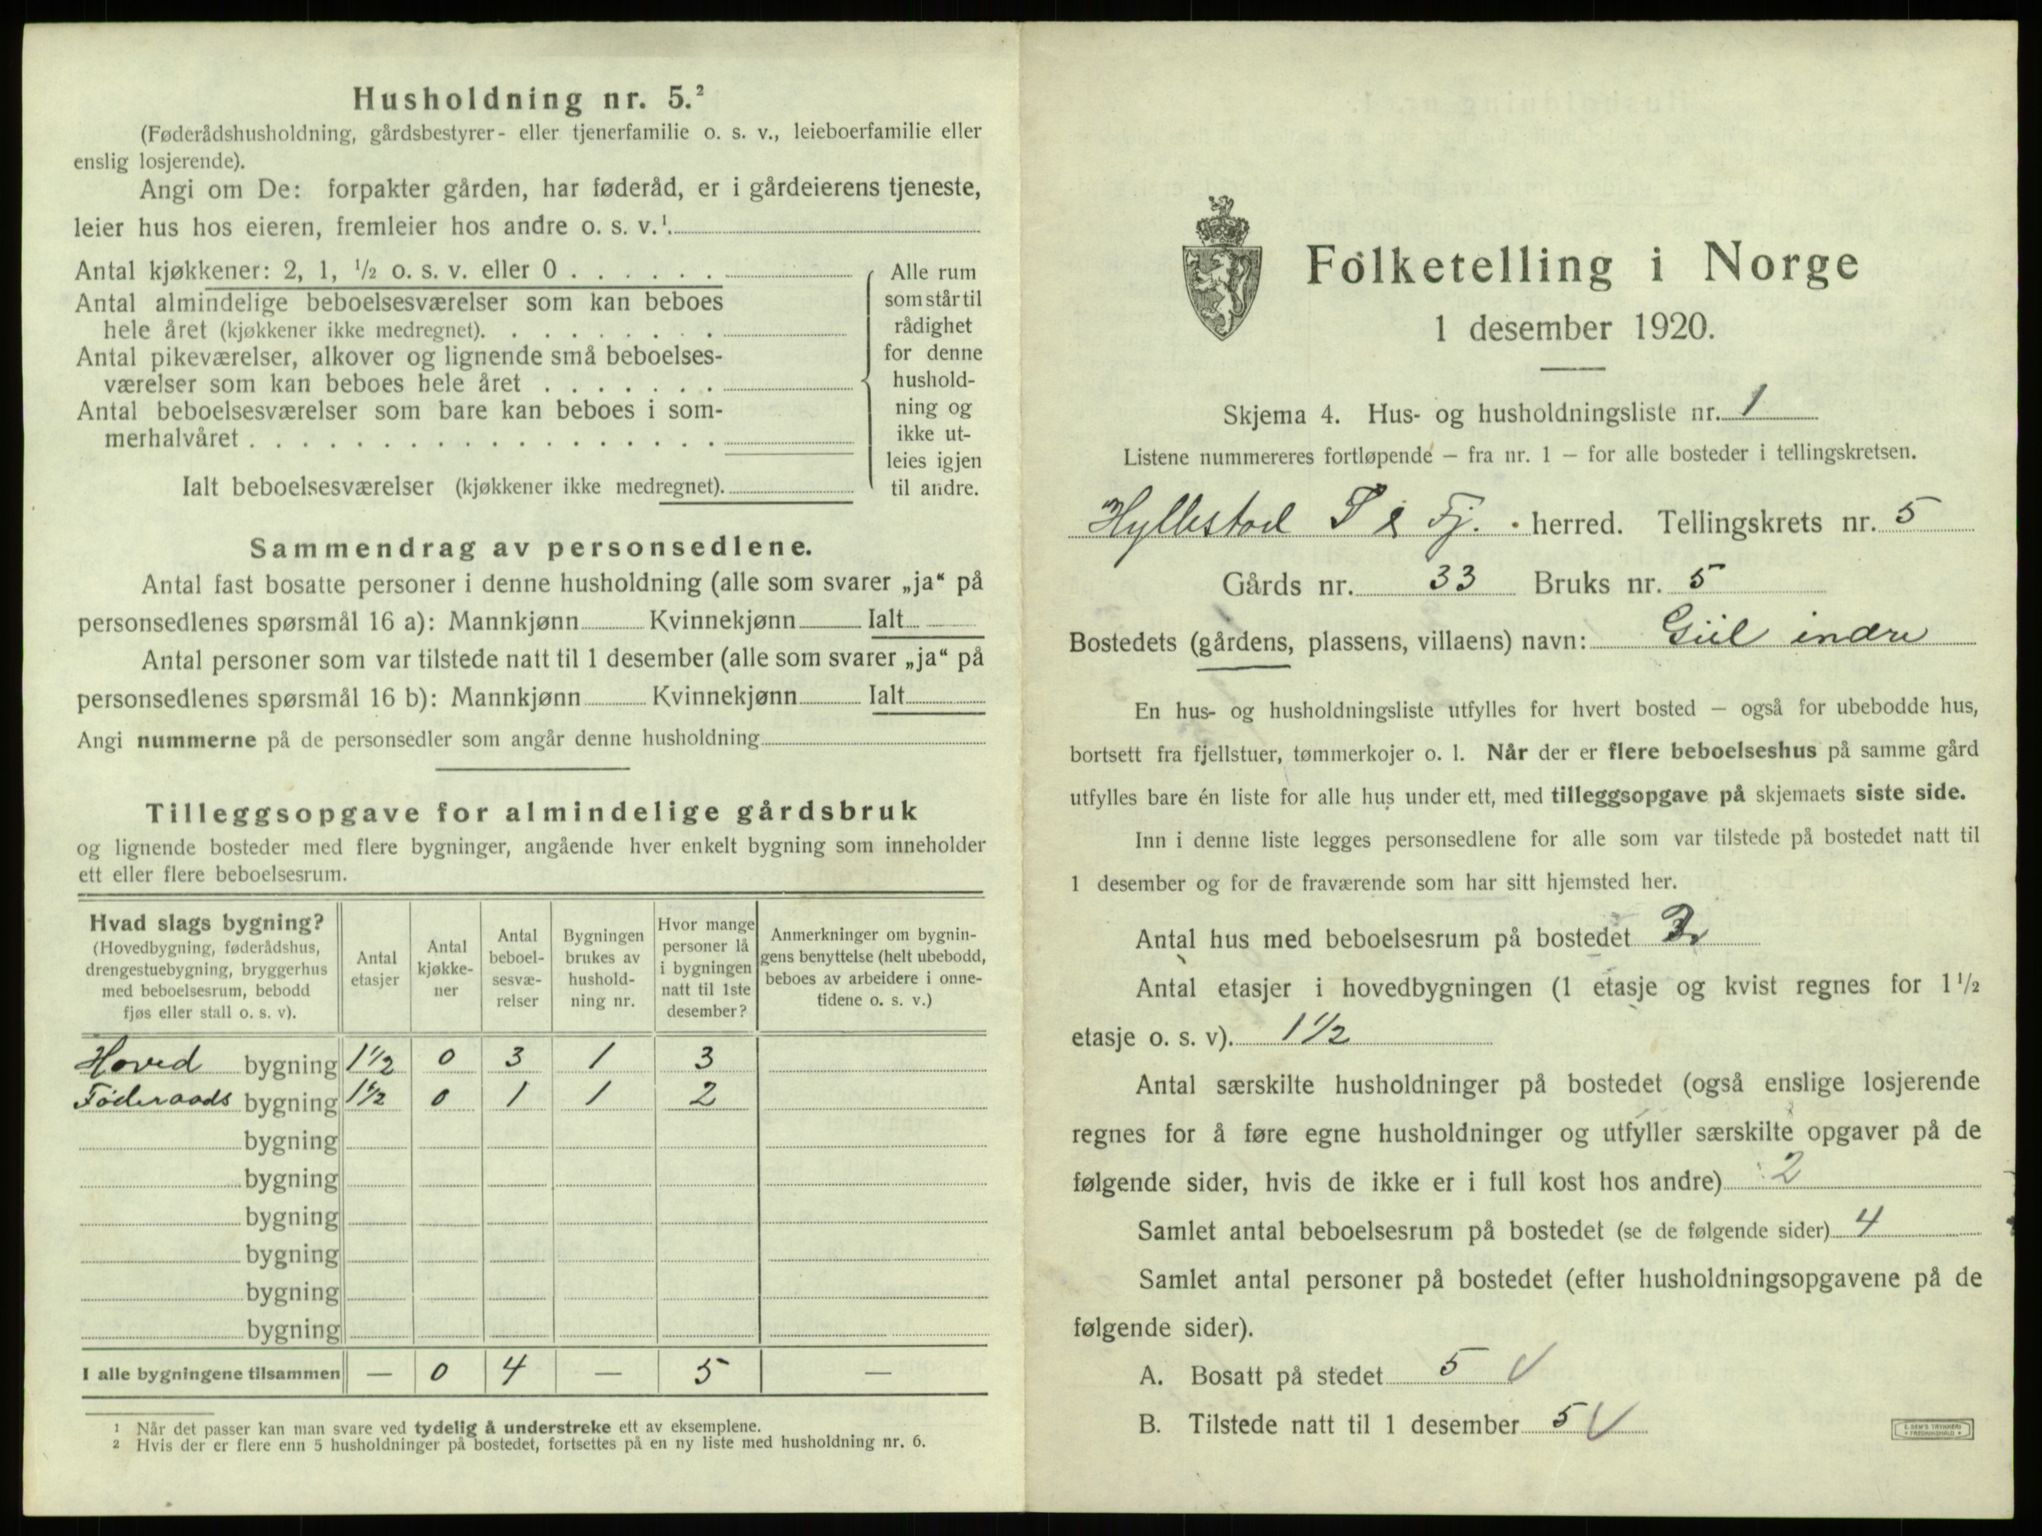 Husholdning nr. 5.²
(Føderådshusholdning, gårdsbestyrer- eller tjenerfamilie o. s. v., leieboerfamilie eller
enslig losjerende).
Angi om De: forpakter gården, har føderåd, er i gårdeierens tjeneste,
leier hus hos eieren, fremleier hos andre o. s. v.¹.
Antal kjøkkener: 2, 1, ½ o. s. v. eller 0 . . . . . .
Antal almindelige beboelsesværelser som kan beboes
hele året (kjøkkener ikke medregnet). . . . . . . . .
Antal pikeværelser, alkover og lignende små beboelses-
værelser som kan beboes hele året . . . . . . .
Antal beboelsesværelser som bare kan beboes i som-
merhalvåret . . . . . . . . . . . . . . . . . .
Ialt beboelsesværelser (kjøkkener ikke medregnet).
Alle rum
som står til
rådighet
for denne
hushold-
ning og
ikke ut-
leies igjen
til andre.
Sammendrag av personsedlene.
Antal fast bosatte personer i denne husholdning (alle som svarer „ja“ på
personsedlenes spørsmål 16 a): Mannkjønn Kvinnekjønn Ialt
Antal personer som var tilstede natt til 1 desember (alle som svarer „ja“ på
personsedlenes spørsmål 16 b): Mannkjønn Kvinnekjønn Ialt
Angi nummerne på de personsedler som angår denne husholdning
Tilleggsopgave for almindelige gårdsbruk
og lignende bosteder med flere bygninger, angående hver enkelt bygning som inneholder
ett eller flere beboelsesrum.
Hvad slags bygning?
(Hovedbygning, føderådshus,
drengestuebygning, bryggerhus
med beboelsesrum, bebodd
fjøs eller stall o. s. v).
Antal
etasjer
Antal
kjøkke-
ner
Antal
beboel-
sesvæ-
relser
Bygningen
brukes av
hushold-
ning nr.
Hvor mange
personer lå
i bygningen
natt til 1ste
desember?
Anmerkninger om bygnin-
gens benyttelse (helt ubebodd,
beboes av arbeidere i onne-
tidene o. s. v.)
Hoved bygning 1½ 0 3 1 3
Føderaads bygning 1½ 0 1 1 2
bygning
bygning
bygning
bygning
bygning
bygning
I alle bygningene tilsammen — 0 4 — 5 —
¹ Når det passer kan man svare ved tydelig å understreke ett av eksemplene.
² Hvis der er flere enn 5 husholdninger på bostedet, fortsettes på en ny liste med husholdning nr. 6.
Folketelling i Norge
1 desember 1920.
Skjema 4. Hus- og husholdningsliste nr. 1
Listene nummereres fortløpende – fra nr. 1 – for alle bosteder i tellingskretsen.
Hyllestad S & Fj. herred. Tellingskrets nr. 5
Gårds nr. 33 Bruks nr. 5
Bostedets (gårdens, plassens, villaens) navn: Giil indre
En hus- og husholdningsliste utfylles for hvert bosted – også for ubebodde hus,
bortsett fra fjellstuer, tømmerkojer o. l. Når der er flere beboelseshus på samme gård
utfylles bare én liste for alle hus under ett, med tilleggsopgave på skjemaets siste side.
Inn i denne liste legges personsedlene for alle som var tilstede på bostedet natt til
1 desember og for de fraværende som har sitt hjemsted her.
Antal hus med beboelsesrum på bostedet
Antal etasjer i hovedbygningen (1 etasje og kvist regnes for 1½
etasje o. s. v). 1½
Antal særskilte husholdninger på bostedet (også enslige losjerende
regnes for å føre egne husholdninger og utfyller særskilte opgaver på de
følgende sider, hvis de ikke er i full kost hos andre) 2
Samlet antal beboelsesrum på bostedet (se de følgende sider) 4
Samlet antal personer på bostedet (efter husholdningsopgavene på de
følgende sider).
A. Bosatt på stedet 5
B. Tilstede natt til 1 desember 5